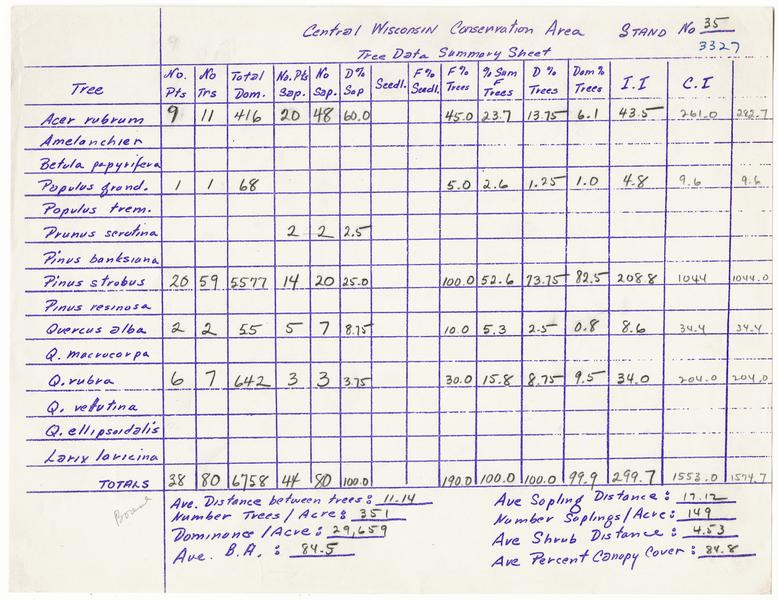 Central Wisconsin Conservation Area STAND No 35
3327
Tree Data Summary Sheet
Tree No. Pts No Trs Total Dom. No. Pts Sap. No Sap. D% Sap Seedl. F% Seedl. F% Trees % Sum F Trees D% Trees Dom% Trees I.I C.I
Acer rubrum 9 11 416 20 48 60.0 45.0 23.7 13.75 6.1 43.5 261.0 282.7
Amelanchier
Betula papyrifera
Populus grand. 1 1 68 5.0 2.6 1.25 1.0 4.8 9.6 9.6
Populus trem.
Prunus serotina 2 2 2.5
Pinus banksiana
Pinus strobus 20 59 5577 14 20 25.0 100.0 52.6 73.75 82.5 208.8 1044 1044.0
Pinus resinosa
Quercus alba 2 2 55 5 7 8.75 10.0 5.3 2.5 0.8 8.6 34.4 34.4
Q. macrocarpa
Q. rubra 6 7 642 3 3 3.75 30.0 15.8 8.75 9.5 34.0 204.0 204.0
Q. velutina
Q. ellipsoidalis
Larix laricina
TOTALS 38 80 6758 44 80 100.0 190.0 100.0 100.0 99.9 299.7 1553.0 1574.7
Ave. Distance between trees: 11.14
Number Trees/Acre: 351
Dominance/Acre: 29,659
Ave. B.A.: 84.5
Ave Sapling Distance: 17.12
Number Saplings/Acre: 149
Ave Shrub Distance: 4.53
Ave Percent Canopy Cover: 84.8